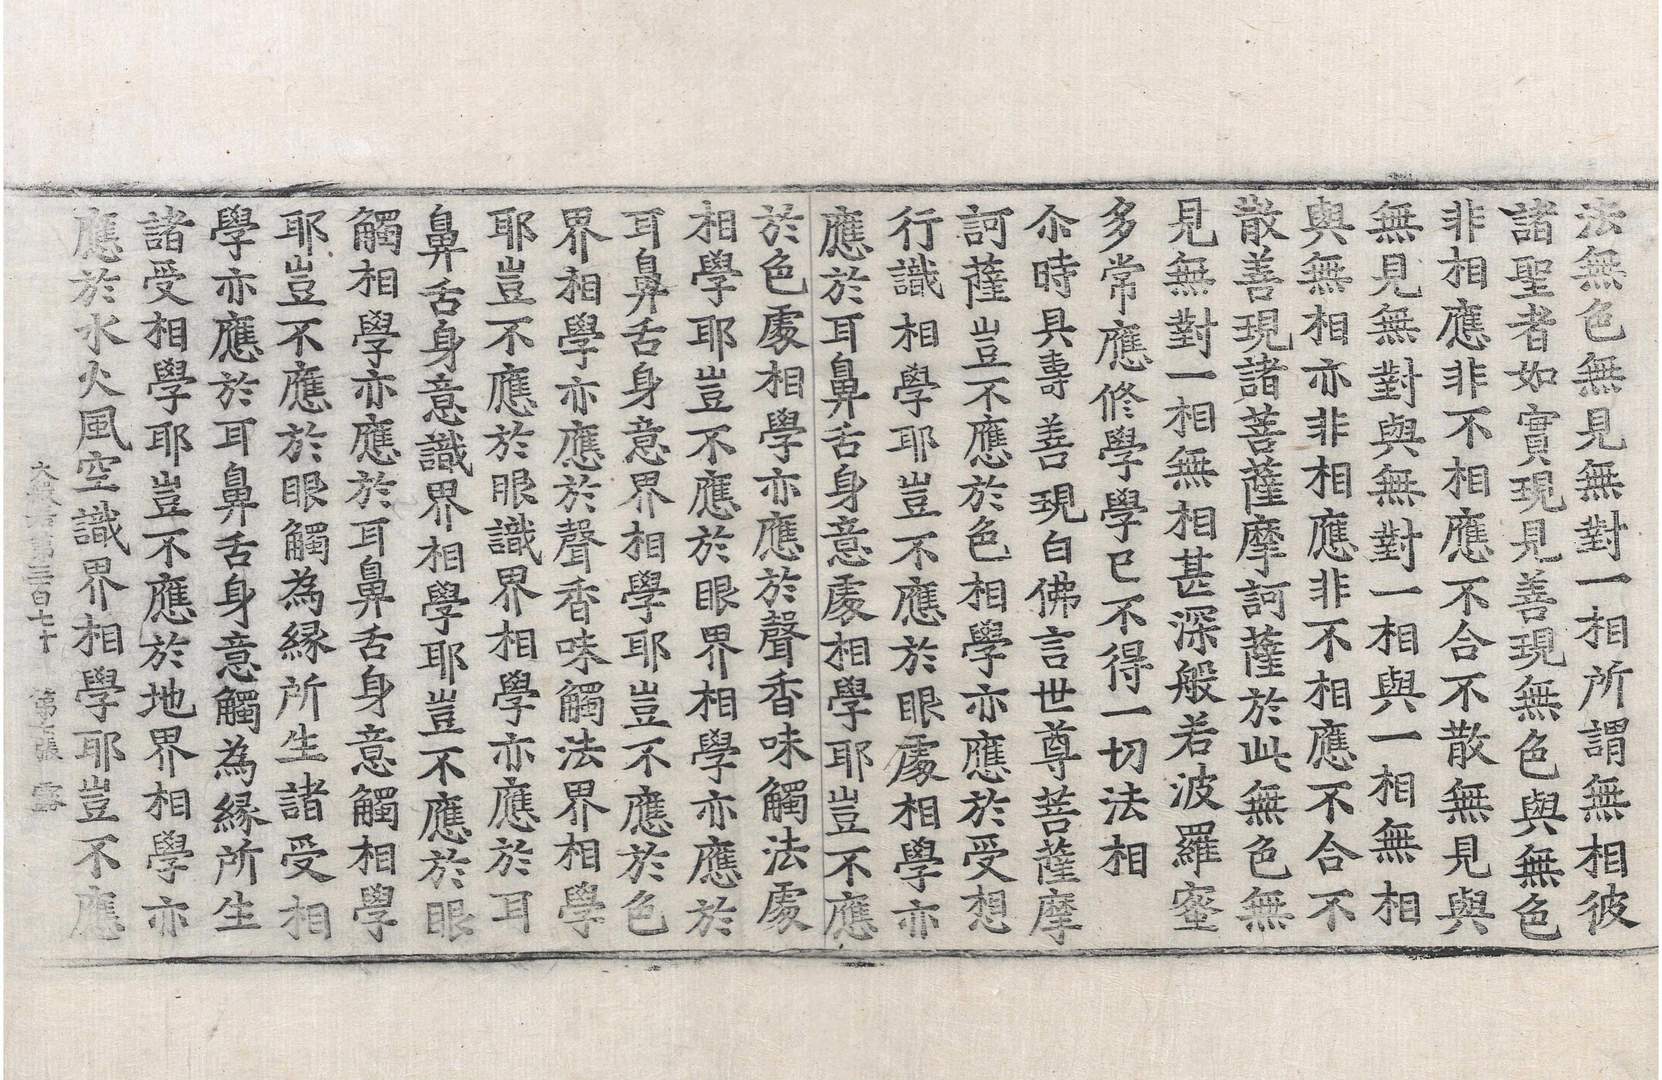 法無色無見無對一相所謂無相彼
諸聖者如實現見善現無色與無色
非相應非不相應不合不散無見與
無見無對與無對一相與一相無相
與無相亦非相應非不相應不合不
散善現諸菩薩摩訶薩於此無色無
見無對一相無相甚深般若波羅蜜
多常應修學學已不得一切法相
尒時具壽善現白佛言世尊菩薩摩
訶薩豈不應於色相學亦應於受想
行識相學耶豈不應於眼處相學亦
應於耳鼻舌身意處相學耶豈不應
於色處相學亦應於聲香味觸法處
相學耶豈不應於眼界相學亦應於
耳鼻舌身意界相學耶豈不應於色
界相學亦應於聲香味觸法界相學
耶豈不應於眼識界相學亦應於耳
鼻舌身意識界相學耶豈不應於眼
觸相學亦應於耳鼻舌身意觸相學
耶豈不應於眼觸為緣所生諸受相
學亦應於耳鼻舌身意觸為緣所生
諸受相學耶豈不應於地界相學亦
應於水火風空識界相學耶豈不應
大般若第三百七十 第 張